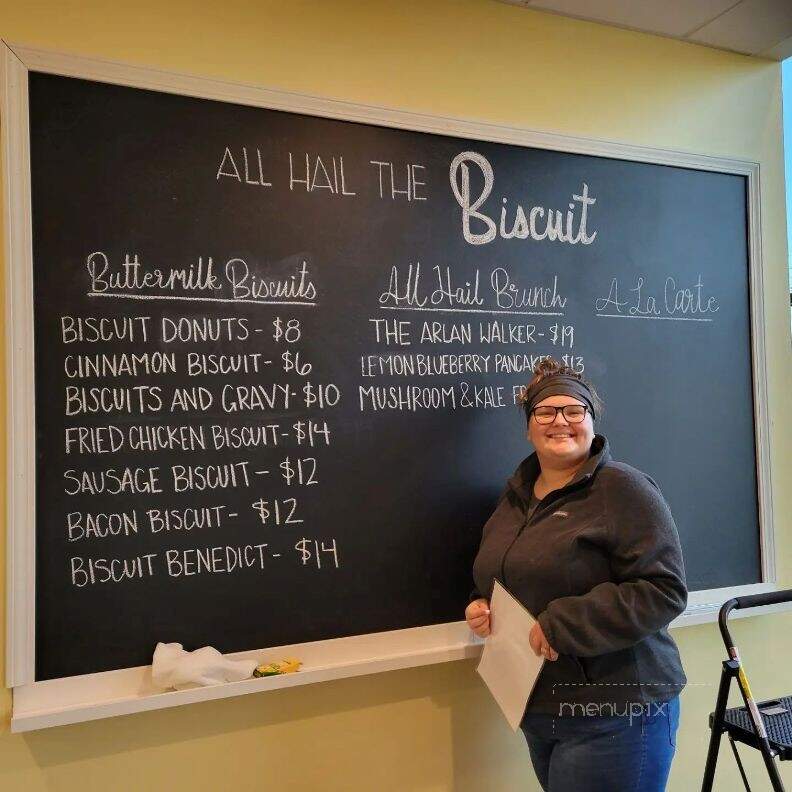 ALL HAIL THE Biscuit
Buttermilk Biscuits
BISCUIT DONUTS - $8
CINNAMON BISCUIT - $6
BISCUITS AND GRAVY - $10
FRIED CHICKEN BISCUIT - $14
SAUSAGE BISCUIT - $12
BACON BISCUIT - $12
BISCUIT BENEDICT - $14
All Hail Brunch
THE ARLAN WALKER - $19
LEMON BLUEBERRY $13
MUSHROOM & KALE
A La Carte
menupix